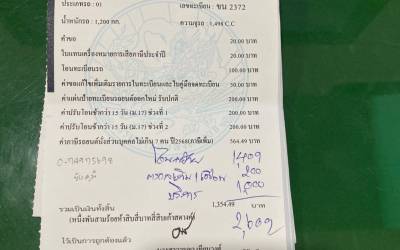 ประเภทรถ : 01 เลขทะเบียน : ขน 2372
น้ำหนักรถ : 1,200 กก. ความจุรถ : 1,498 C.C
ค่าคำขอ 20.00 บาท
ใบแทนเครื่องหมายการเสียภาษีประจำปี 20.00 บาท
โอนทะเบียนรถ 100.00 บาท
ค่าขอแก้ไขเพิ่มเติมรายการในทะเบียนและใบคู่มือจดทะเบียน 50.00 บาท
ค่าแผ่นป้ายทะเบียนรถยนต์ออกใหม่ รับปกติ 200.00 บาท
ค่าปรับโอนช้ากว่า 15 วัน (ม.17) ช่วงที่ 1 200.00 บาท
ค่าปรับโอนช้ากว่า 15 วัน (ม.17) ช่วงที่ 2 200.00 บาท
ค่าภาษีรถยนต์นั่งส่วนบุคคลไม่เกิน 7 คน ปี2568(ภาษีเพิ่ม) 564.49 บาท
1,409
200
บริการ 1,000
รวมเป็นเงินทั้งสิ้น 1,354.49 บาท
(หนึ่งพันสามร้อยห้าสิบสี่บาทสี่สิบเก้าสตางค์)
2609
ไว้เป็นการถูกต้องแล้ว